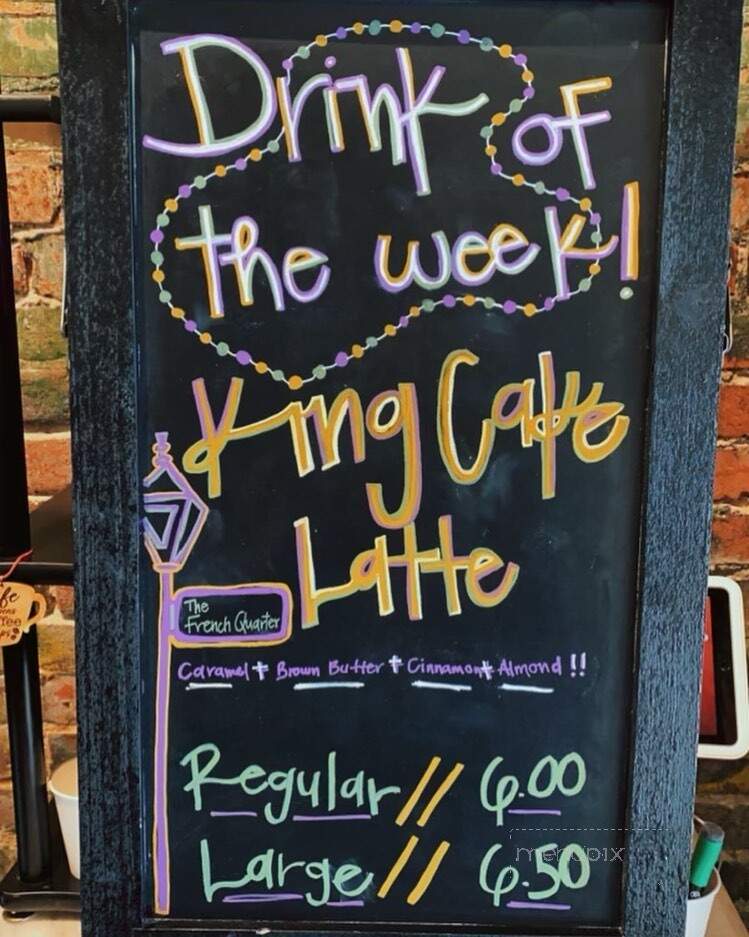 Drink of
the week!
King Cake
Latte
The
French Quarter
Caramel + Brown Butter + Cinnamon + Almond !!
Regular // 6.00
Large // 6.50
menupix